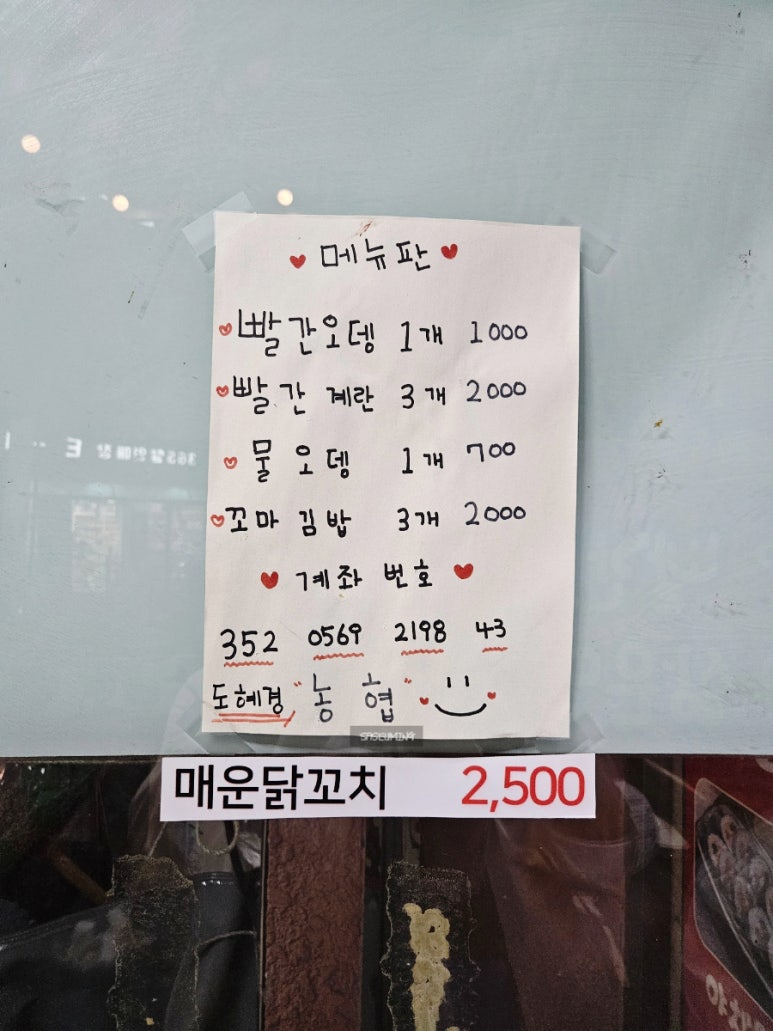 메뉴판
빨간오뎅 1개 1000
빨간 계란 3개 2000
물 오뎅 1개 700
꼬마 김밥 3개 2000
계좌 번호
352 0569 2198 43
도혜경 "농협"
SASLUMING
매운닭꼬치 2,500